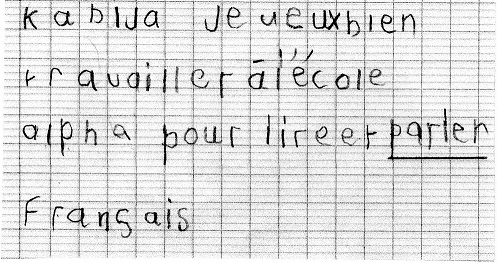 Kabija Je veuxbien
travailler àl'école
alpha pour lireet parler
Français